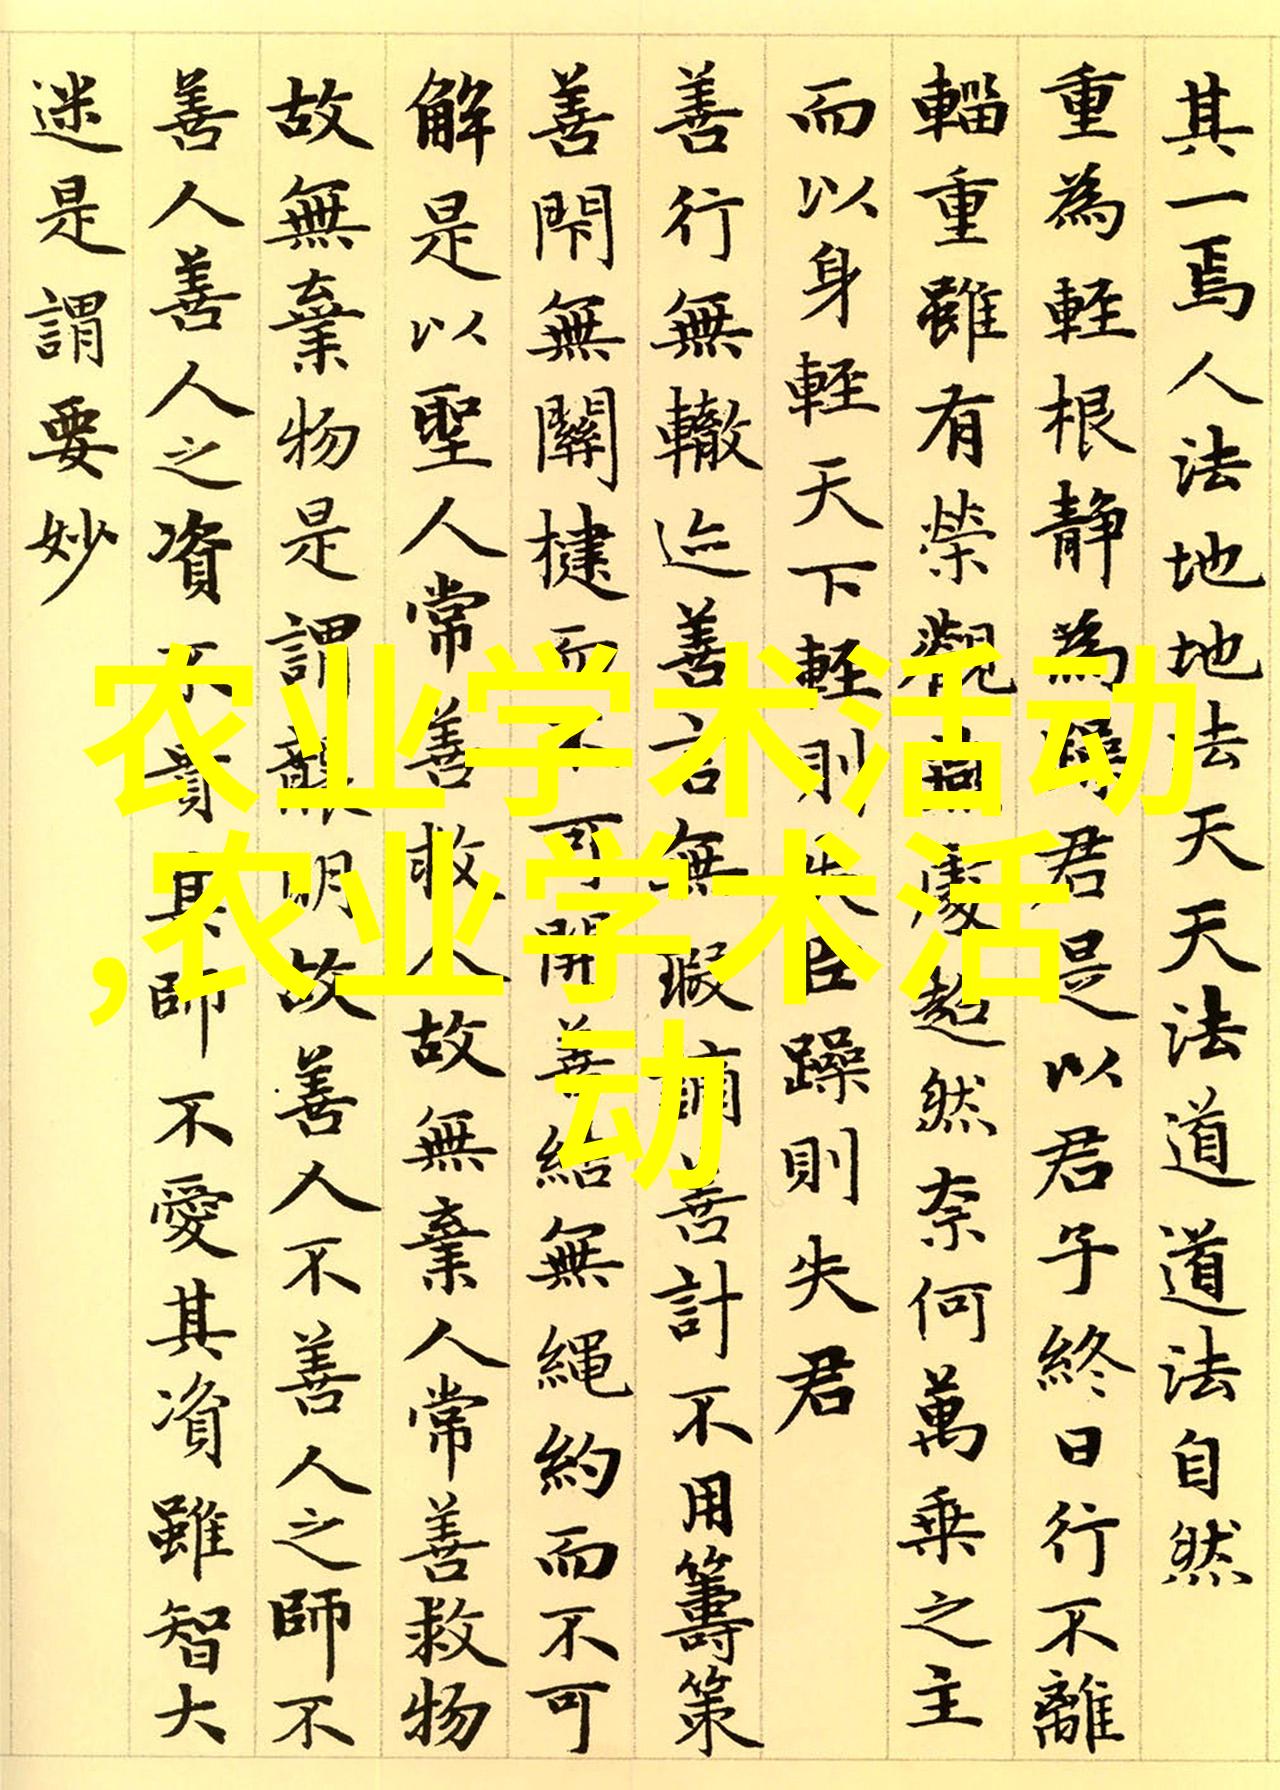 其一焉人法地地法天天法道道法自然
重為輕根靜為躁君是以君子終日行不離
輜重雖有榮觀燕處超然奈何萬乘之主
而以身輕天下輕則失臣躁則失君
善行無轍迹善言無瑕讁善計不用籌策
善閇無關楗而不可開善結無繩約而不可
解是以聖人常善救人故無棄人常善救物
故無棄物是謂襲明故善人不善人之師不
善人善人之資不貴其師不愛其資雖智大
迷是謂要妙
农业学术活动
,农业学术活
动